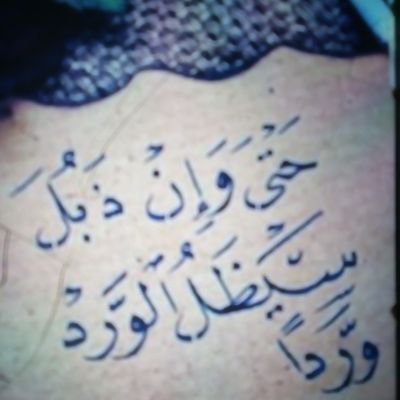 حَتَّىٰ وَإِنْ ذَبُلَ
سَيَظَلُّ الْوَرْدُ
وَرْداً